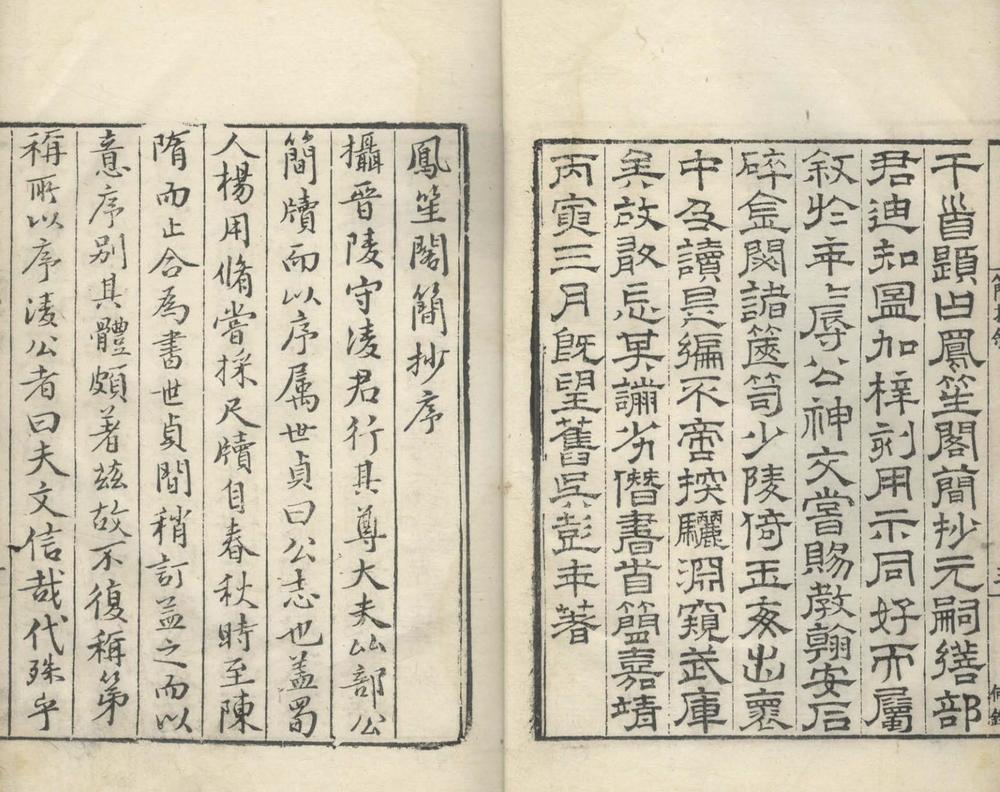 于首題曰鳳笙閣簡抄元嗣繕部
君迪知圖加梓刻用示同好而屬
敘於年〻辱公神交嘗賜教翰安石
碎金閟諸篋笥少陵倚玉亥出褱
中及讀是編不啻探驪淵窺武庫
矣故敢忘其謭劣僭書首簡嘉靖
丙寅三月既望舊吳彭年著
鳳笙閣簡抄序
攝晉陵守淩君行其尊大夫比部公
簡牘而以序属世貞曰公志也盖蜀
人楊用脩嘗採尺牘自春秋時至陳
隋而止合為書世貞間稍訂益之而以
意序别其體頗著兹故不復稱第
稱所以序淩公者曰夫文信哉代殊乎